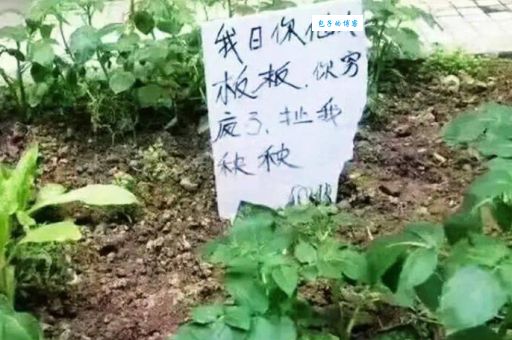 包子的博客
我日你仙人
板板，你穷
疯了，扯我
秧秧